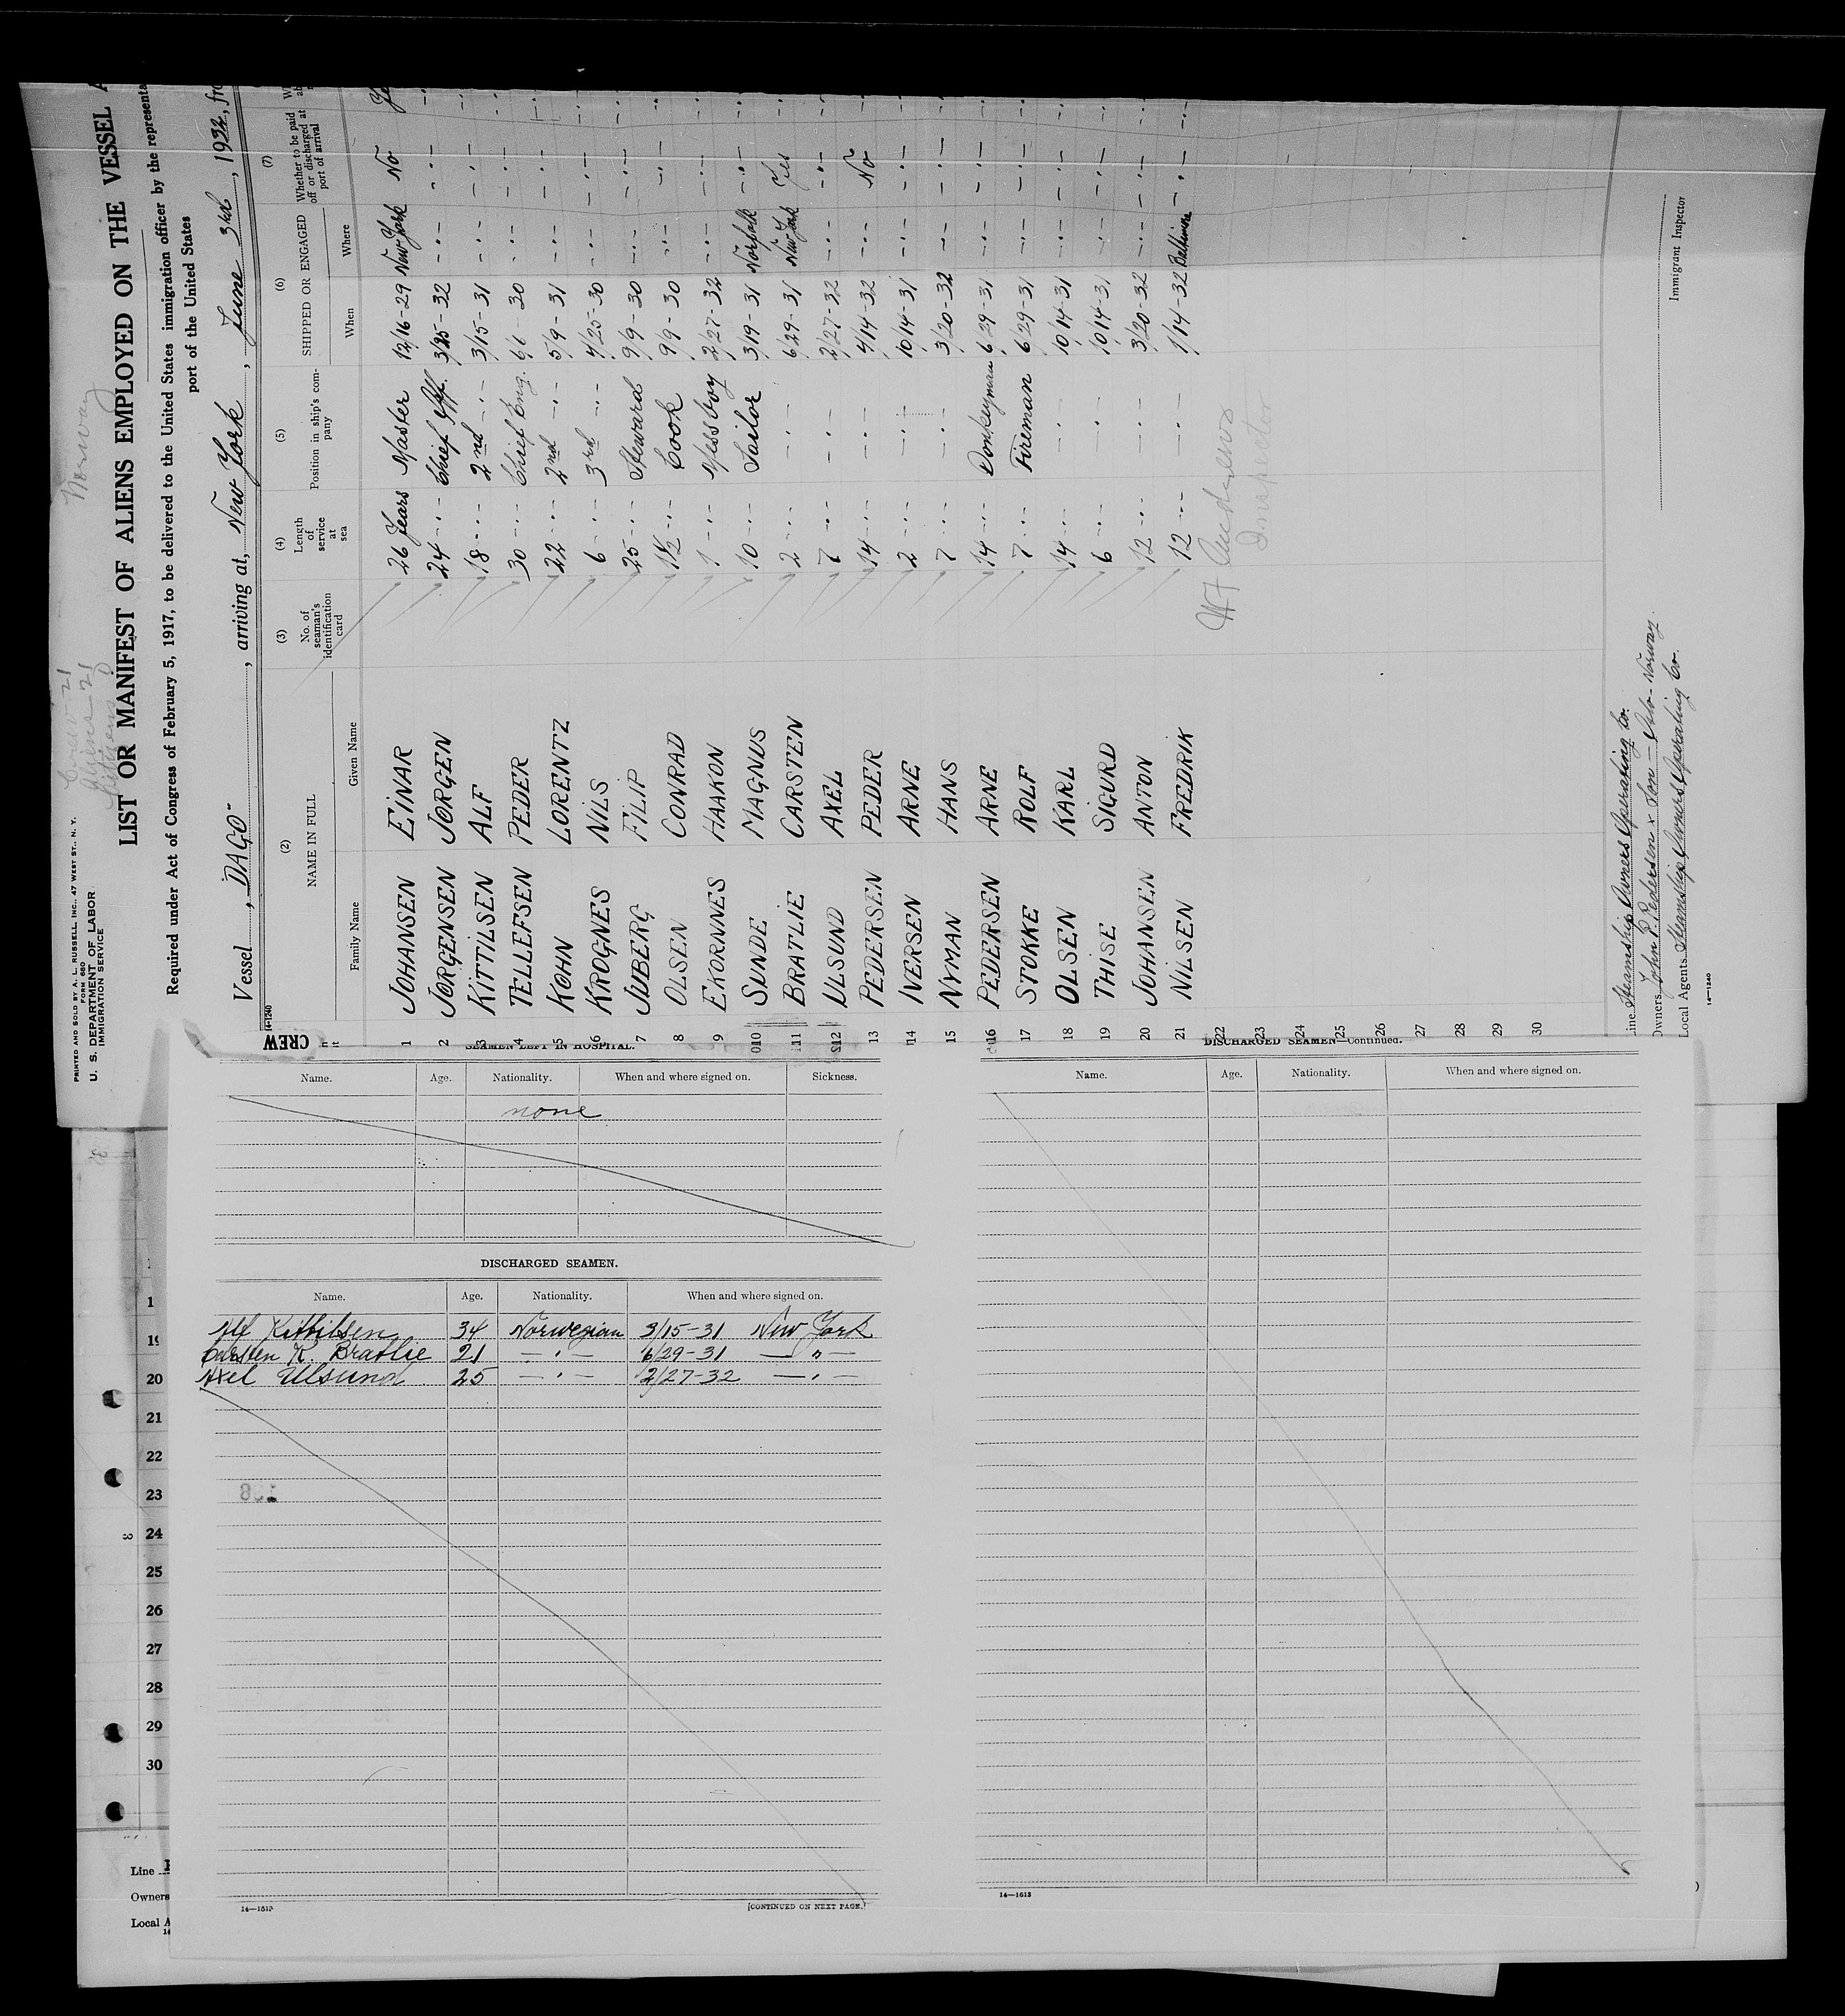 Norway
Crew - 21
Aliens - 21
PRINTED AND SOLD BY A. L. RUSSELL, INC., 47 WEST ST., N. Y.
FORM 680
U. S. DEPARTMENT OF LABOR
IMMIGRATION SERVICE
LIST OR MANIFEST OF ALIENS EMPLOYED ON THE VESSEL
Required under Act of Congress of February 5, 1917, to be delivered to the United States immigration officer by the
port of the United States
Vessel "DAGO", arriving at New York, June 3rd, 1932,
14-1240
CREW
(2) (3) (4) (5) (6) (7)
NAME IN FULL No. of seaman's identification card Length of service at sea Position in ship's company SHIPPED OR ENGAGED Whether to be paid off or discharged at port of arrival
Family Name Given Name When Where
1 JOHANSEN EINAR 26 Years Master 12/16-29 New York No
2 JORGENSEN JORGEN 24 -"- Chief Off. 3/25-32 -"- -"-
3 KITTILSEN ALF 18 -"- 2nd -"- 3/15-31 -"- -"-
4 TELLEFSEN PEDER 30 -"- Chief Eng. 6/6-30 -"- -"-
5 KOHN LORENTZ 22 -"- 2nd -"- 5/9-31 -"- -"-
6 KROGNES NILS 6 -"- 3rd -"- 4/25-30 -"- -"-
7 JUBERG FILIP 25 -"- Steward 9/9-30 -"- -"-
8 OLSEN CONRAD 1 1/2 -"- Cook 9/9-30 -"- -"-
9 EKORNNES HAAKON 1 -"- Messboy 2/27-32 -"- -"-
10 SUNDE MAGNUS 10 -"- Sailor 3/19-31 Norfolk -"-
11 BRATLIE CARSTEN 2 -"- -"- 6/29-31 New York Yes
12 ULSUND AXEL 7 -"- -"- 2/27-32 -"- -"-
13 PEDERSEN PEDER 14 -"- -"- 4/14-32 -"- No
14 IVERSEN ARNE 2 -"- -"- 10/14-31 -"- -"-
15 NYMAN HANS 7 -"- -"- 3/20-32 -"- -"-
16 PEDERSEN ARNE 14 -"- Donkeyman 6/29-31 -"- -"-
17 STOKKE ROLF 7 -"- Fireman 6/29-31 -"- -"-
18 OLSEN KARL 14 -"- -"- 10/14-31 -"- -"-
19 THISE SIGURD 6 -"- -"- 10/14-31 -"- -"-
20 JOHANSEN ANTON 12 -"- -"- 3/20-32 -"- -"-
21 NILSEN FREDRIK 12 -"- -"- 1/14-32 Baltimore -"-
22
23
24
25
26
27
28
29
30
Inspector
Line Steamship Owners Operating Co.
Owners John P. Pedersen & Son - Oslo - Norway
Local Agents Steamship Owners Operating Co.
Immigrant Inspector
14—1240
SEAMEN LEFT IN HOSPITAL.
Name. Age. Nationality. When and where signed on. Sickness.
none
DISCHARGED SEAMEN.
Name. Age. Nationality. When and where signed on.
Alf Kittilsen 34 Norwegian 3/15-31 New York
Carsten K. Bratlie 21 -"- 6/29-31 -"-
Axel Ulsund 25 -"- 2/27-32 -"-
14—1613
[CONTINUED ON NEXT PAGE.]
DISCHARGED SEAMEN—Continued.
Name. Age. Nationality. When and where signed on.
14—1613
1
19
20
21
22
23
24
25
26
27
28
29
30
3
Line
Owners
Local A